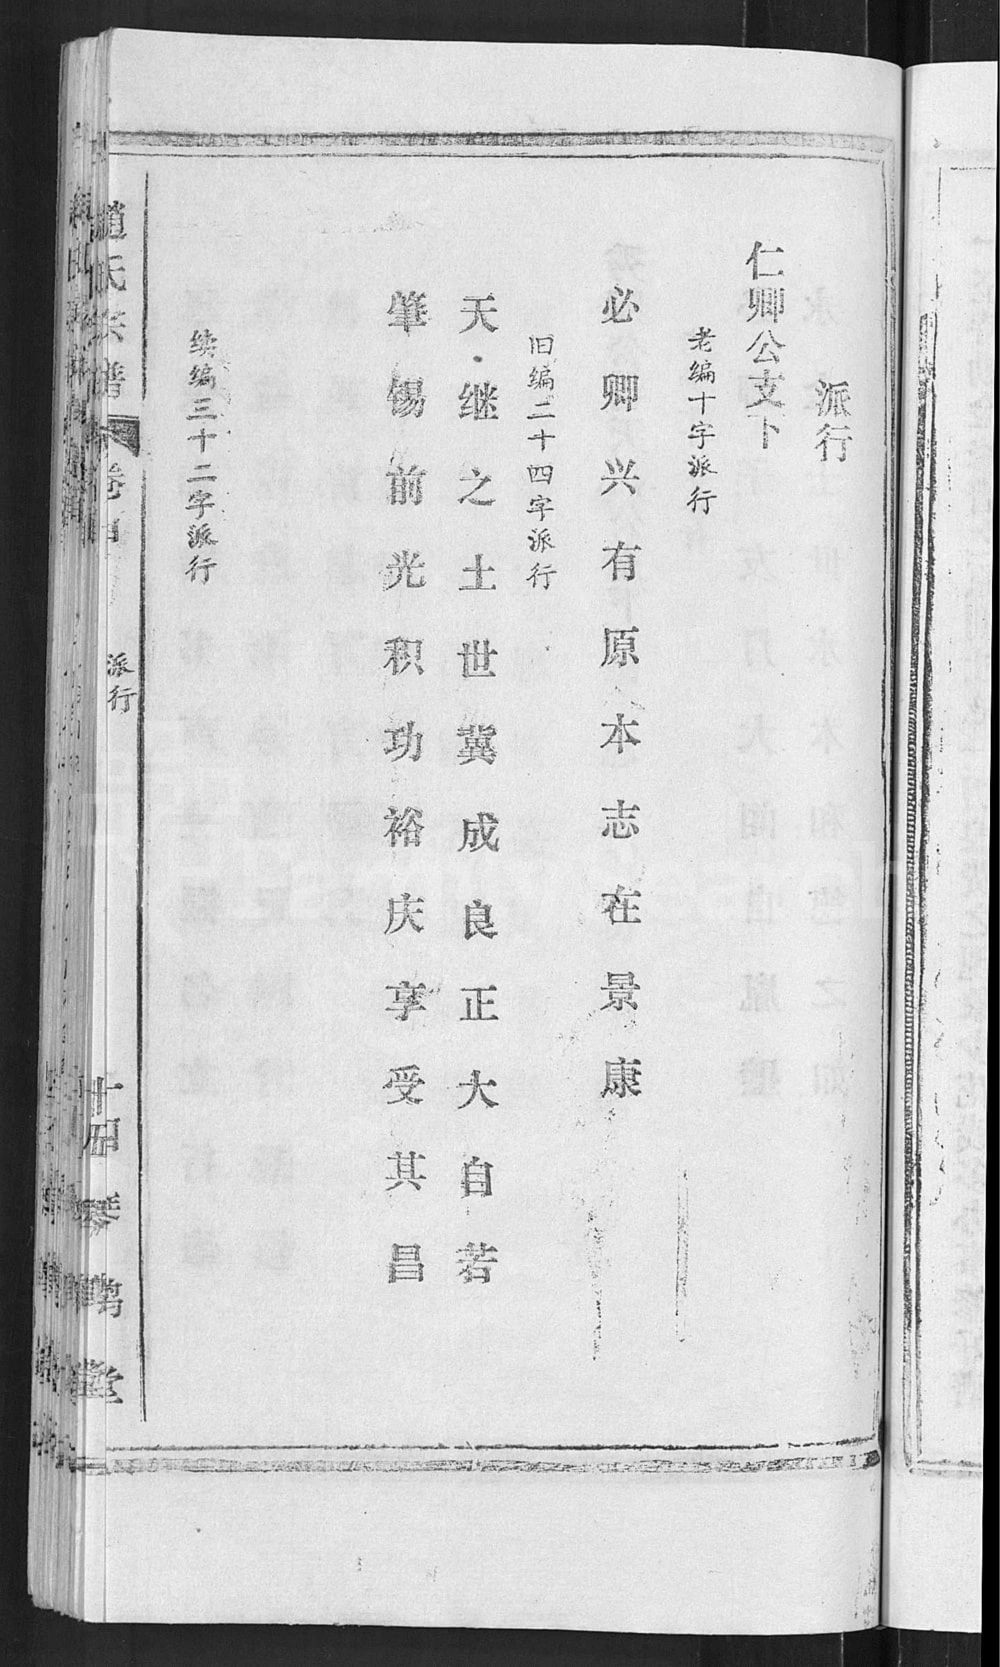 派行
仁卿公支下
老编十字派行
必卿兴有原本志在景康
旧编二十四字派行
天继之土世冀成良正大自若
肇锡前光积功裕庆享受其昌
续编三十二字派行
趙氏宗谱
派行
琴鹤堂